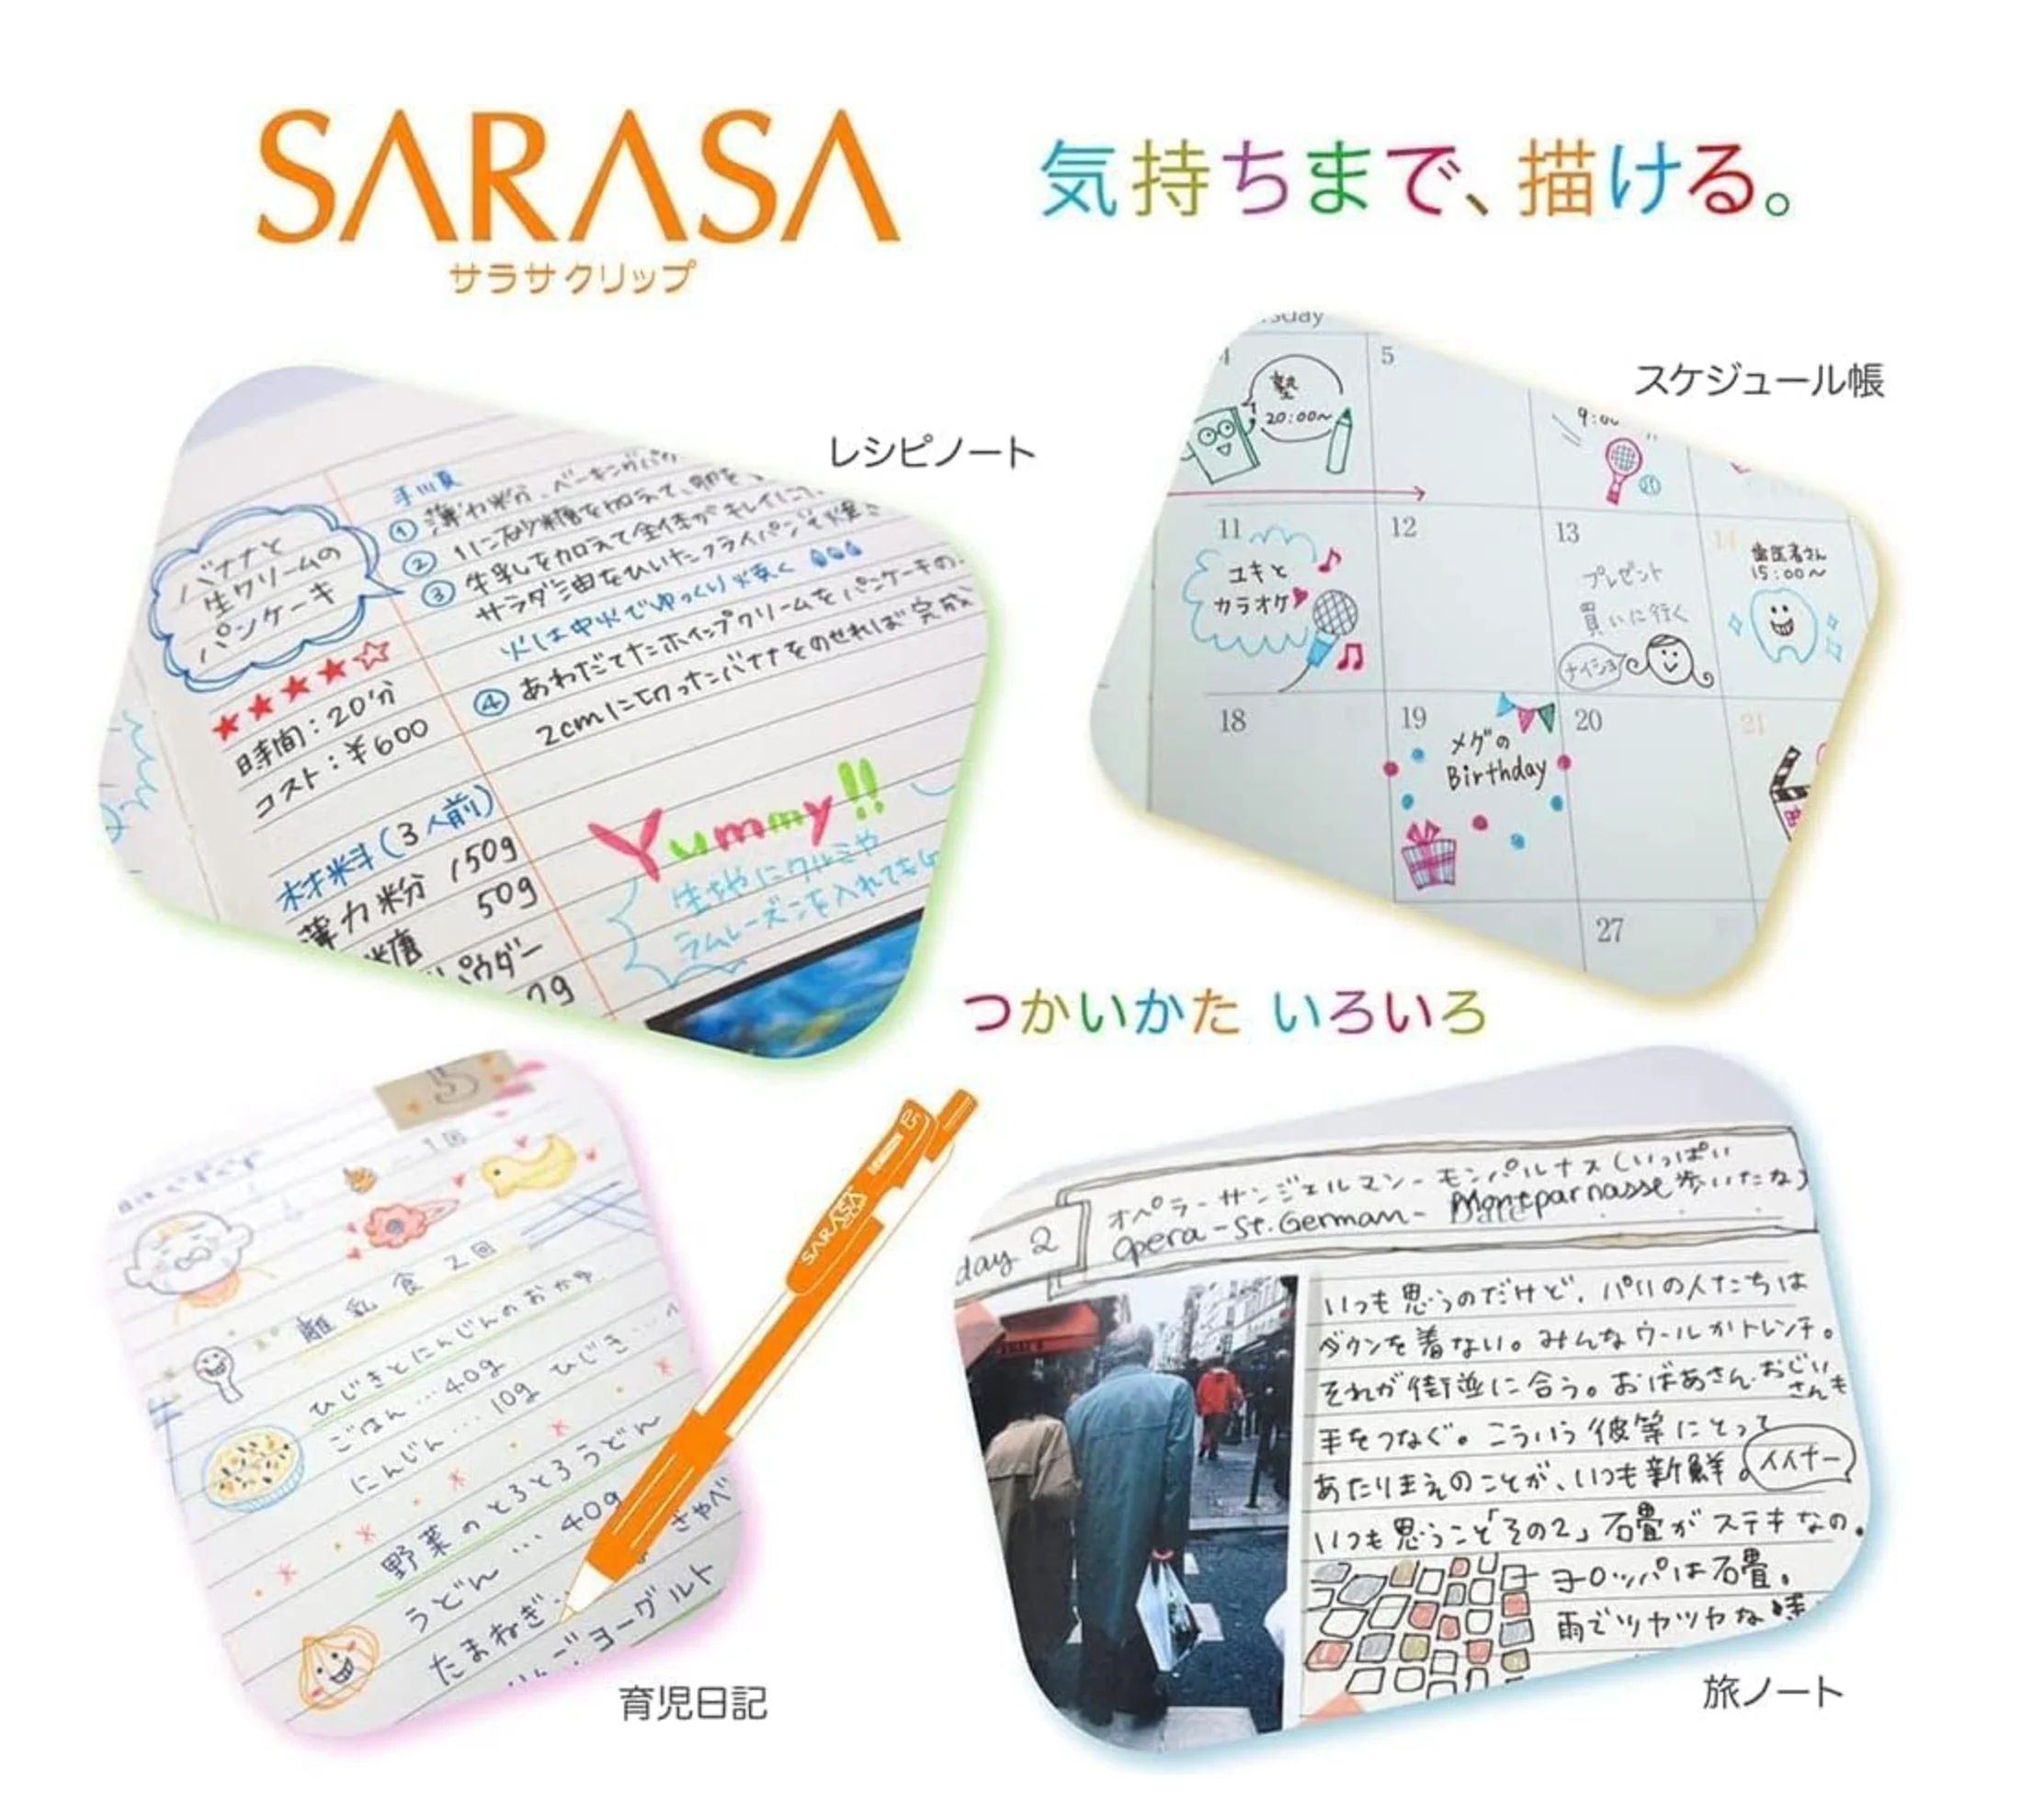 SARASA
サラサクリップ
気持ちまで、描ける。
レシピノート
バナナと
生クリームの
パンケーキ
★★★★☆
時間：20分
コスト：¥600
材料(3人前)
薄力粉 150g
糖 50g
パウダー
手順
① 薄力粉、ベーキングパウ
② 1に砂糖を加えて、卵を
③ 牛乳を加えて全体がキレイに
サラダ油をひいたフライパンで焼き
火は中火でゆっくり焼く
④ あわだてたホイップクリームをパンケーキの
2cmに切ったバナナをのせれば完成
Yummy!!
生地にクルミや
ラムレーズンを入れても
スケジュール帳
sday
4
塾
20:00~
5
11
ユキと
カラオケ
12
13
プレゼント
買いに行く
ナイショ
14
歯医者さん
15:00~
18
19
メグの
Birthday
20
21
27
つかいかた いろいろ
1回
離乳食 2回
ひじきとにんじんのおかゆ
ごはん…40g
にんじん…10g ひじき…
野菜のとろとろうどん
うどん…40g
たまねぎ
ヨーグルト
SARASA
0.5
育児日記
day 2
オペラ-サンジェルマン-モンパルナス(いっぱい
歩いたな)
Opera-St.German-Montparnasse
いつも思うのだけど、パリの人たちは
ダウンを着ない。みんなウールかトレンチ。
それが街並に合う。おばあさん・おじいさんも
手をつなぐ。こういう彼等にとって
あたりまえのことが、いつも新鮮。
イイナー
いつも思うこと「その2」石畳がステキなの。
ヨーロッパは石畳。
雨でツヤツヤな
旅ノート